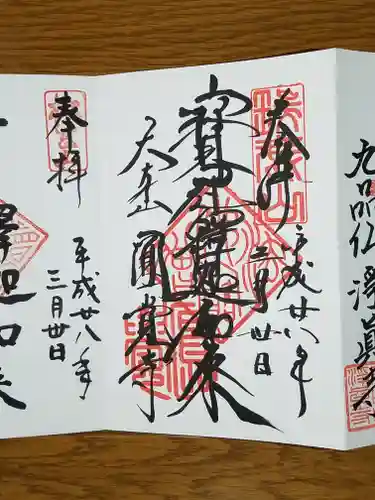 九品仏 淨眞寺
奉拝
平成廿八年
三月廿日
寶冠釋迦如来
大本山 圓覺寺
奉拝
平成廿八年
三月廿日
釋迦如来